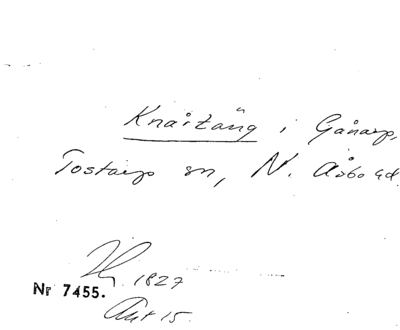 Knårtäng i Gånarp,
Tostarp sn, N. Åsbo hd.
1827
Nr 7455.
Akt 15.